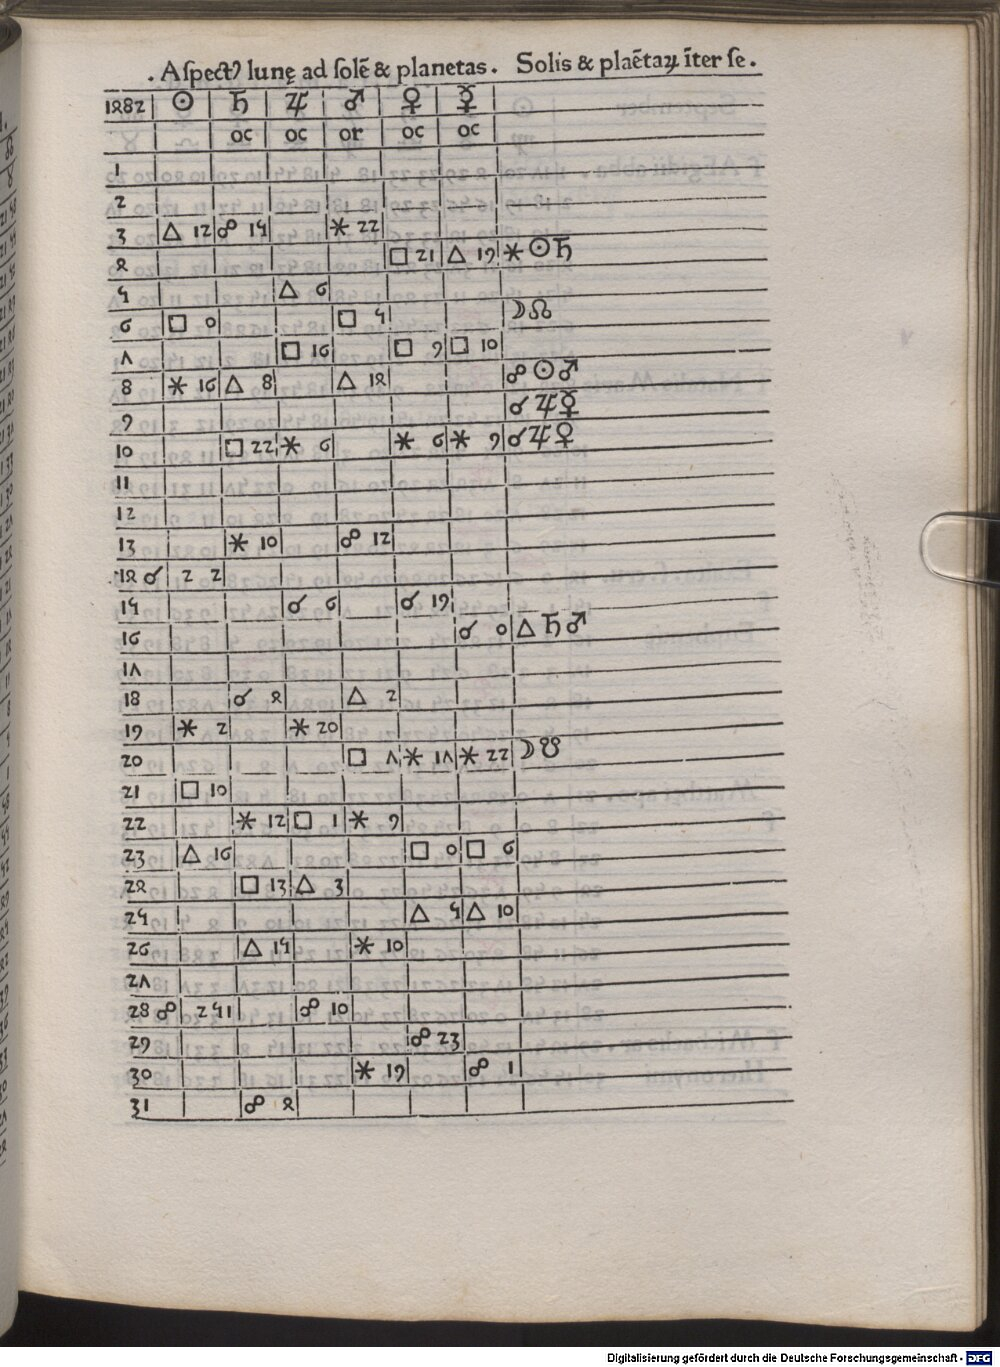 . Aspectꝰ lunę ad solē & planetas . Solis & plaētaꝝ īter se .
1482 ☉ ♄ ♃ ♂ ♀ ☿
oc oc or oc oc
1
2
3 △ 12 ☍ 15 ⚹ 22
4 □ 21 △ 19 ⚹ ☉ ♄
5 △ 6
6 □ 0 □ 5 ☽ ☊
7 □ 16 □ 9 □ 10
8 ⚹ 16 △ 8 △ 14 ☍ ☉ ♂
9 ☌ ♃ ♀
10 □ 22 ⚹ 6 ⚹ 6 ⚹ 9 ☌ ♃ ♀
11
12
13 ⚹ 10 ☍ 12
14 ☌ 2 2
15 ☌ 6 ☌ 19
16 ☌ 0 △ ♄ ♂
17
18 ☌ 4 △ 2
19 ⚹ 2 ⚹ 20
20 □ 7 ⚹ 17 ⚹ 22 ☽ ☋
21 □ 10
22 ⚹ 12 □ 1 ⚹ 9
23 △ 16 □ 0 □ 6
24 □ 13 △ 3
25 △ 5 △ 10
26 △ 15 ⚹ 10
27
28 ☍ 2 51 ☍ 10
29 ☍ 23
30 ⚹ 19 ☍ 1
31 ☍ 4
Digitalisierung gefördert durch die Deutsche Forschungsgemeinschaft - DFG